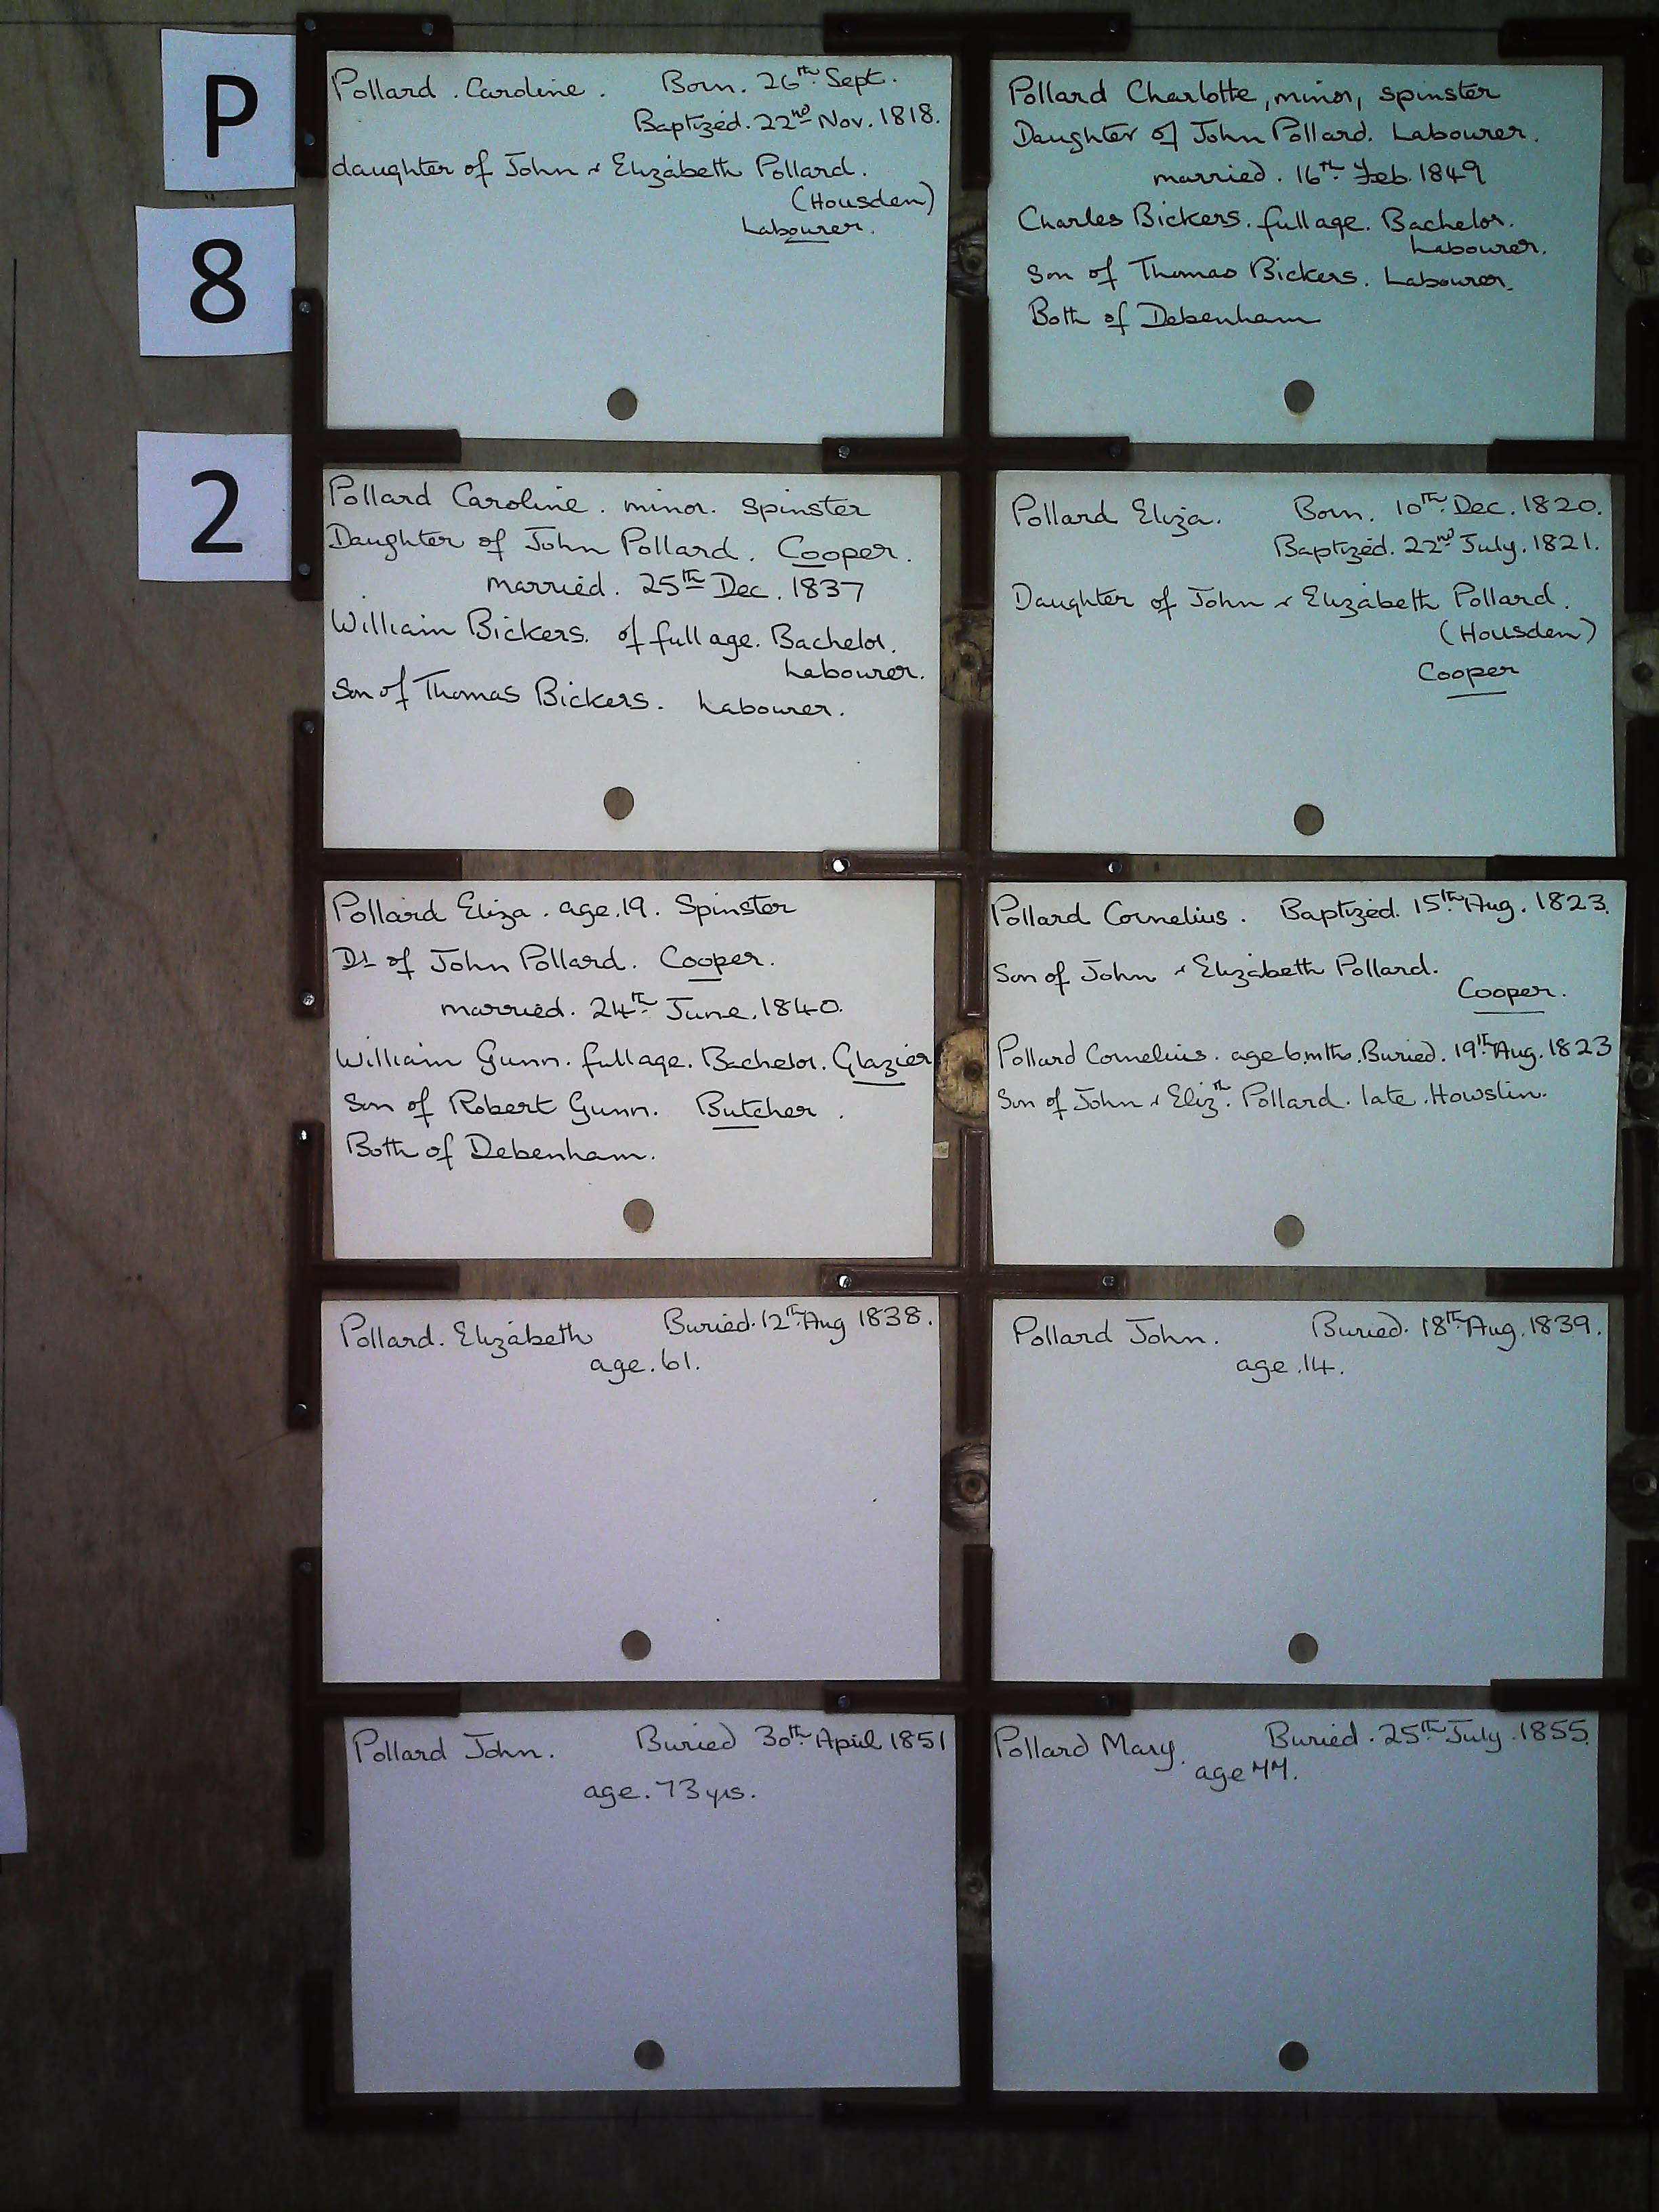 P
8
2
Pollard . Caroline . Born. 26th Sept.
Baptized. 22nd Nov. 1818.
daughter of John & Elizabeth Pollard.
(Housden)
Labourer.
Pollard Charlotte, minor, spinster
Daughter of John Pollard. Labourer.
married. 16th Feb. 1849
Charles Bickers. full age. Bachelor.
Labourer.
Son of Thomas Bickers. Labourer.
Both of Debenham
Pollard Caroline. minor. spinster
Daughter of John Pollard. Cooper.
married. 25th Dec. 1837
William Bickers. of full age. Bachelor.
Labourer.
Son of Thomas Bickers. Labourer.
Pollard Eliza. Born. 10th Dec. 1820.
Baptized. 22nd July. 1821.
Daughter of John & Elizabeth Pollard.
(Housden)
Cooper
Pollard Eliza. age.19. Spinster
Dr of John Pollard. Cooper.
married. 24th June. 1840.
William Gunn. full age. Bachelor. Glazier
Son of Robert Gunn. Butcher.
Both of Debenham.
Pollard Cornelius. Baptized. 15th Aug. 1823.
Son of John & Elizabeth Pollard.
Cooper.
Pollard Cornelius. age 6 mths. Buried. 19th Aug. 1823
Son of John & Elizth. Pollard. late. Howslin.
Pollard. Elizabeth Buried. 12th Aug 1838.
age. 61.
Pollard John. Buried. 18th Aug. 1839.
age. 14.
Pollard John. Buried 30th April 1851
age. 73 yrs.
Pollard Mary. Buried. 25th July. 1855.
age 77.